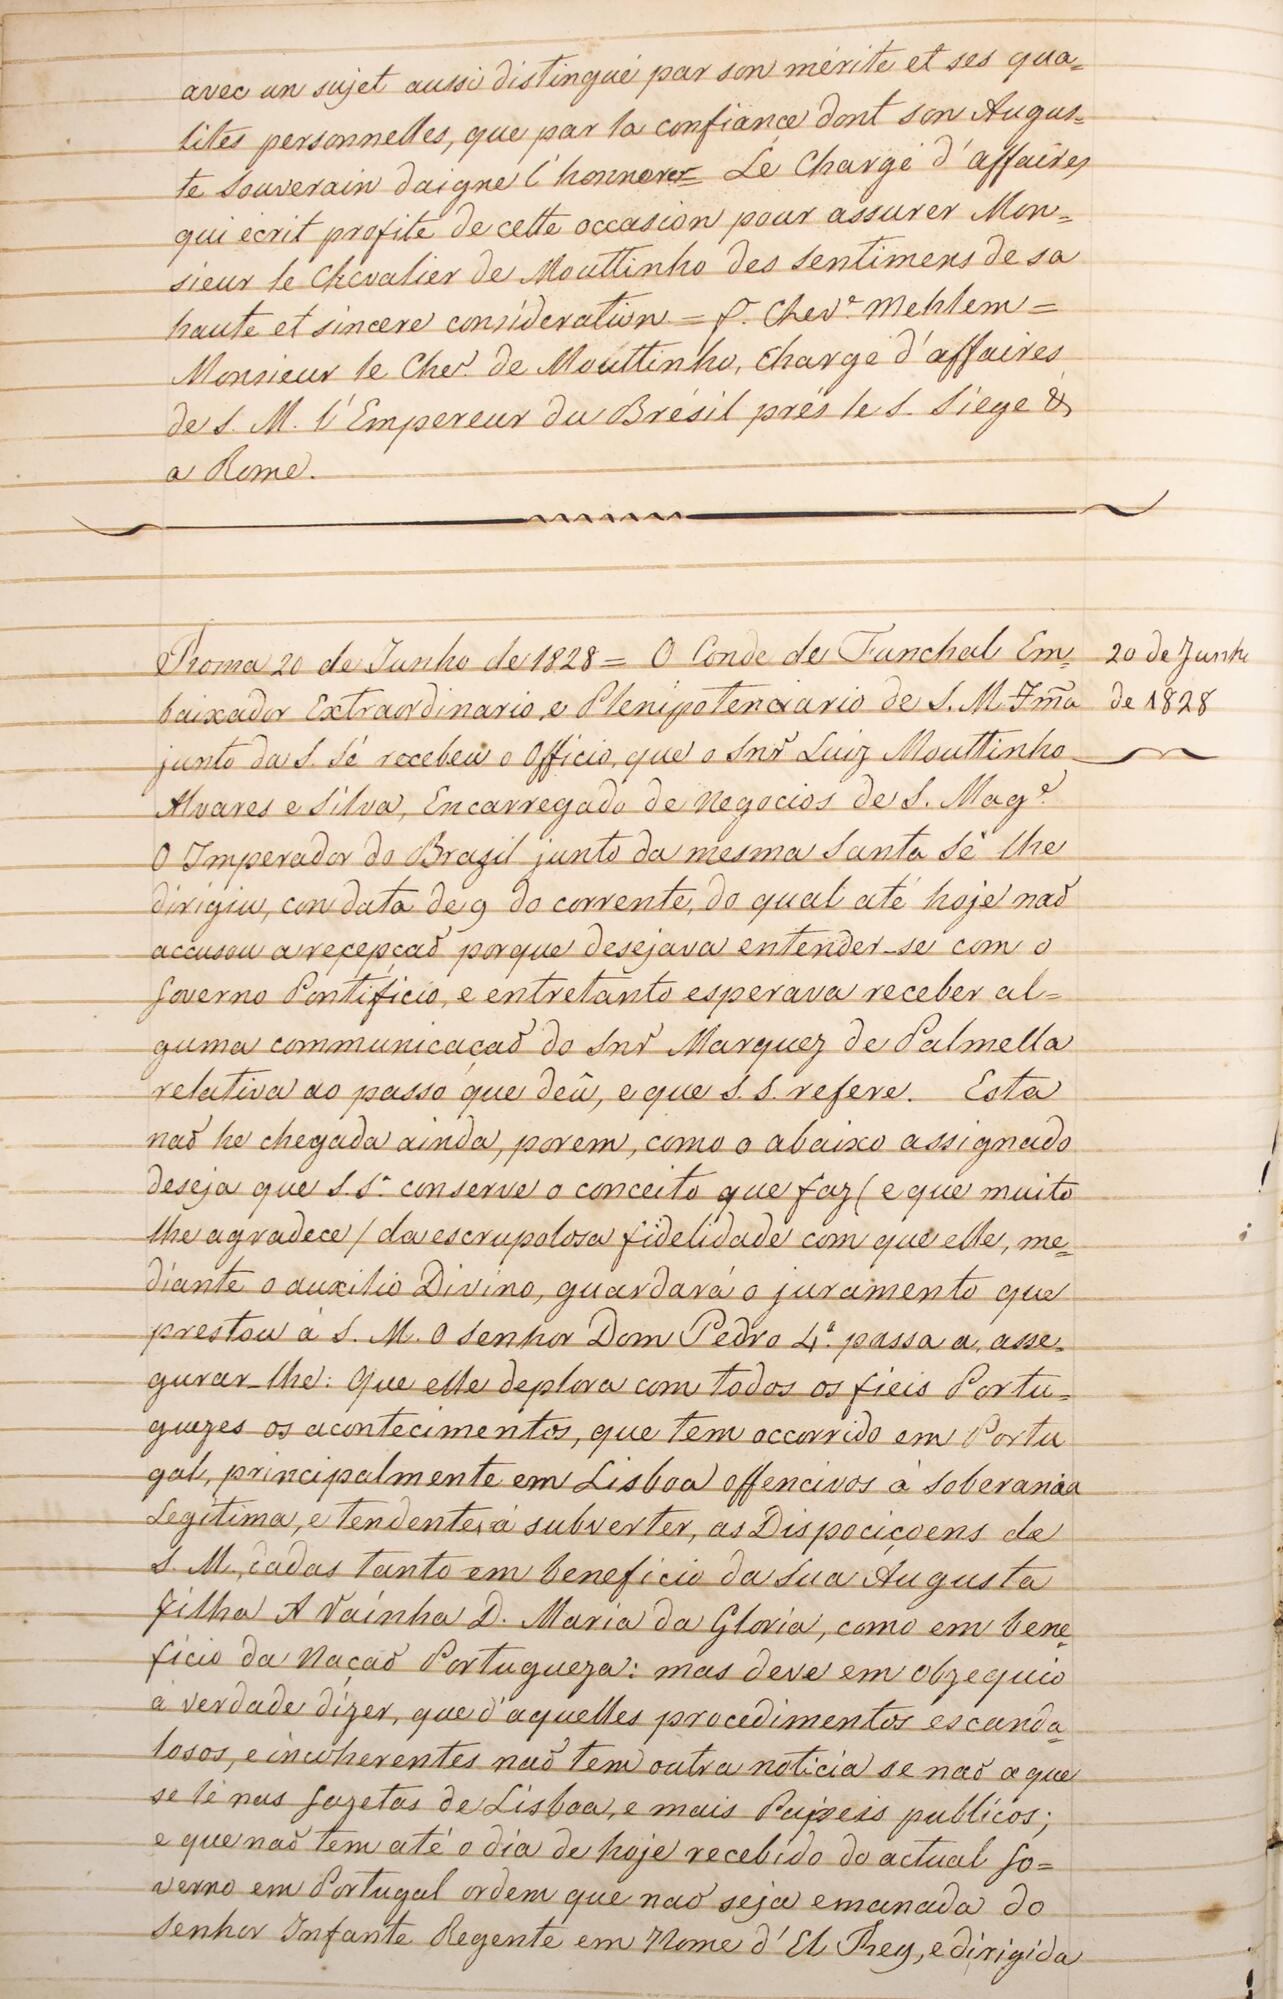 avec un sujet aussi distingué par son mérite et ses qua=
lités personnelles, que par la confiance dont son Augus=
te Souverain daigne l'honnorer= Le Chargé d'affaires
qui écrit profite de cette occasion pour assurer Mon=
sieur le Chevalier de Mouttinho des sentimens de sa
haute et sincere consideration = f. Chev.e Mehlem =
Monsieur le Cher. de Mouttinho, chargé d'affaires
de S. M. l'Empereur du Brésil prés le S. Siége &
a Rome.
Roma 20 de Junho de 1828 = O Conde de Funchal Em=
baixador Extraordinario, e Plenipotenciario de S. M. Fm̃a
junto da S. Sé recebeu o Officio, que o Snr̃ Luiz Mouttinho
Alvares e Silva, Encarregado de Negocios de S. Mag.e
O Imperador do Brazil junto da mesma Santa Sé lhe
dirigiu, con data de 9 do corrente, do qual até hoje naõ
accusou a recepçaõ porque desejava entender-se com o
Governo Pontificio, e entretanto esperava receber al=
guma communicaçaõ do Snr̃ Marquez de Palmella
relativa ao passo que deû, e que S. S. refere. Esta
naõ he chegada ainda, porem, como o abaixo assignado
deseja que S. S.a conserve o conceito que faz (e que muito
lhe agradece) da escrupolosa fidelidade com que elle, me=
diante o auxilio Divino, guardará o juramento que
prestou á S. M. O Senhor Dom Pedro 4.º passa a asse=
gurar-lhe: Que elle deplora com todos os fieis Portu=
guezes os acontecimentos, que tem occorrido em Portu
gal, principalmente em Lisboa offencivos á Soberania
Legitima, e tendentes á subverter, as Dispociçoens de
S. M., dadas tanto em beneficio da Sua Augusta
filha A Rainha D. Maria da Gloria, como em bene=
ficio da Naçaõ Portugueza: mas deve em obzequio
á verdade dizer, que d'aquelles procedimentos escanda=
losos, e incoherentes naõ tem outra noticia se naõ a que
se lê nas Gazetas de Lisboa, e mais Papeis publicos;
e que naõ tem até o dia de hoje recebido do actual Go=
verno em Portugal ordem que naõ seja emanada do
Senhor Infante Regente em Nome d'El Rey, e dirigida
20 de Junho
de 1828